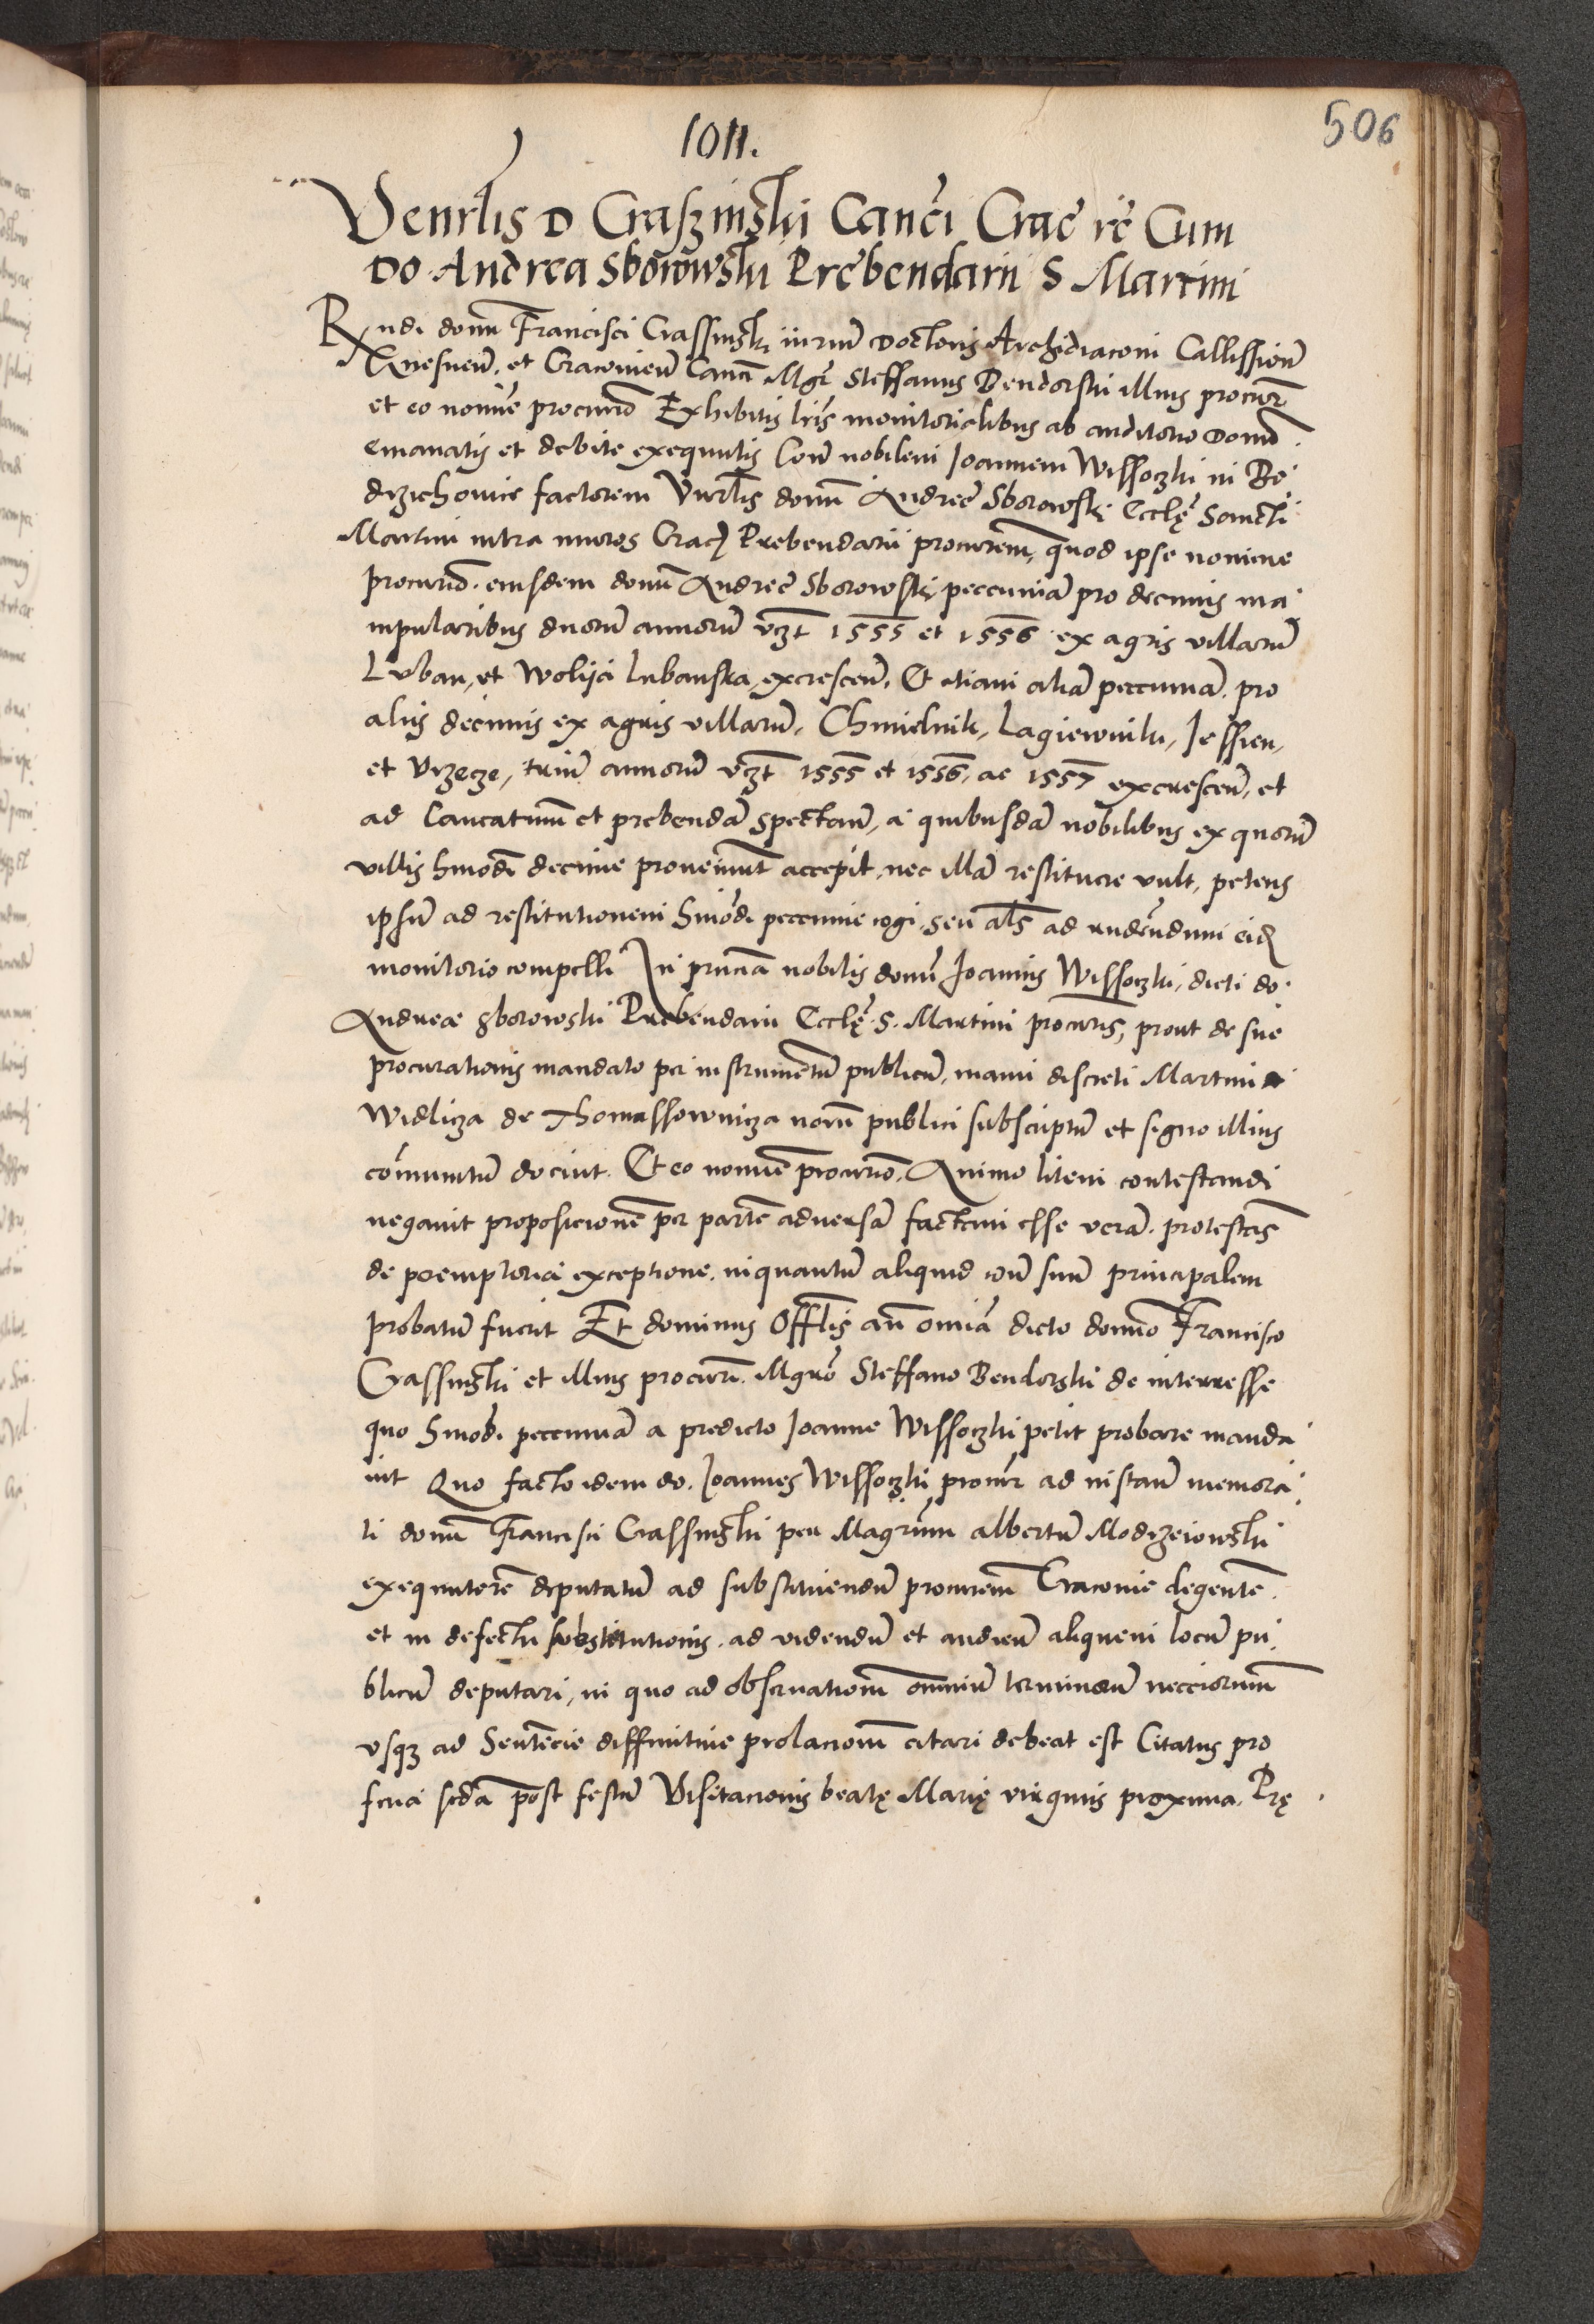 506
1011.
Venrlis D Craszinski Canci Crac rc Cum
Do Andrea Sborowski Prebendarii S Martini
Rndi domi Francisci Crassinski iurium Doctoris Archidiaconi Callissien
Gnesnen. et Cracovien Canci Mgr Steffanus Bendorski illius procur
et eo nomine procurio Exhibitis lris monitorialibus ab auditorio Domi
emanatis et debite exequutis Con nobilem Joannem Wissoczki in Be
drzichovice factorem Vnrlis domi Andree Sborowski Eccle Sancti
Martini intra muros Crac Prebendarii procurem, quod ipse nomine
procurio. eiusdem domi Andree Sborowski peccuniam pro decimis ma
nipularibus duorum annorum vzt 1555 et 1556 ex agris villarum
Luban, et Wolija Lubanska, excrescen. Et etiam aliam peccuniam. pro
aliis decimis ex agris villarum, Chmielnik, Lagiewniki, Jessien,
et Vrzecze, trium annorum vzt 1555 et 1556, ac 1557 excrescen, et
ad Cancatum et prebendam spectan, a quibusdam nobilibus ex quorum
villis hmodi decime proveniunt accepit, nec illam restituere vult, petens
ipsum ad restitutionem hmodi peccunie cogi, seu als ad rndendum eid
monitorio compelli In prncia nobilis domi Joannis Wissoczki, dicti do.
Andreae Sborowski Prebendarii Eccle. S. Martini procuris, prout de sue
procurationis mandato per instrumentum publicum, manu discreti Martini
Widlicza de Thomassowicza notrii publici subscriptum et signo illius
comunitum docuit. Et eo nomine procurio. Animo litem contestandi
negavit proposicionem per partem adversam factam esse veram. protestans
de peremptoria exceptione. inquantum aliquid con suum principalem
probatum fuerit Et dominus Offtlis an omnia dicto domino Francisco
Crassinski et illius procuri. Mgro Steffano Bendorski de interresse
quo hmodi peccuniam a predicto Joanne Wissoczki petit probare manda
vit Quo facto idem do. Joannes Wissoczki procur ad instan memora
ti domi Francisci Crassinski per Magrum albertum Modrzeiowski
exequutorem deputatum ad substituendum procurem Cracovie degentem.
et in defectu substitutionis. ad videndum et audien aliquem locum pu
blicum deputari, in quo ad observationem omnium terminorum necciorum
vsq ad Sentencie diffinitive prolacionem citari debeat est Citatus pro
feria scda post festum Visitacionis beatę Marię virginis proxima. Prę